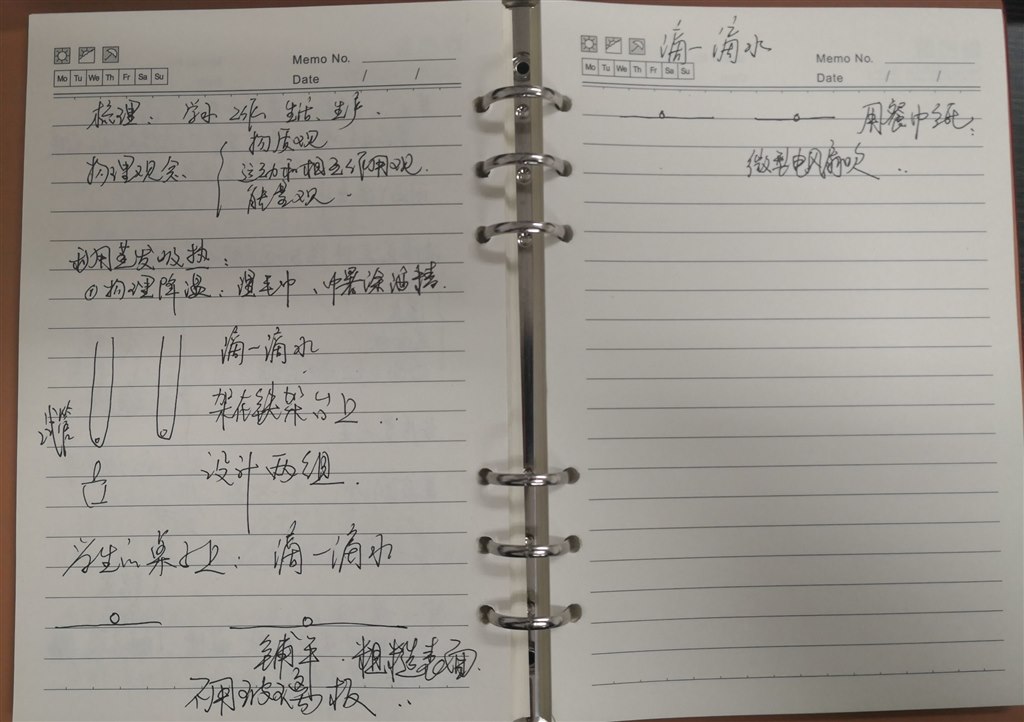 Memo No.
Mo Tu We Th Fr Sa Su
Date / /
梳理: 学习 生活、生产.
物质观
物理观念、 运动和相互作用观.
能量观.
利用蒸发吸热:
①物理降温: 湿毛巾、中暑涂酒精.
滴一滴水
架在铁架台上..
试管
设计两组.
学生的桌子上: 滴一滴水
铺平. 粗糙表面.
不用玻璃板..
滴一滴水
Memo No.
Mo Tu We Th Fr Sa Su
Date / /
用餐巾纸;
微型电风扇吹..